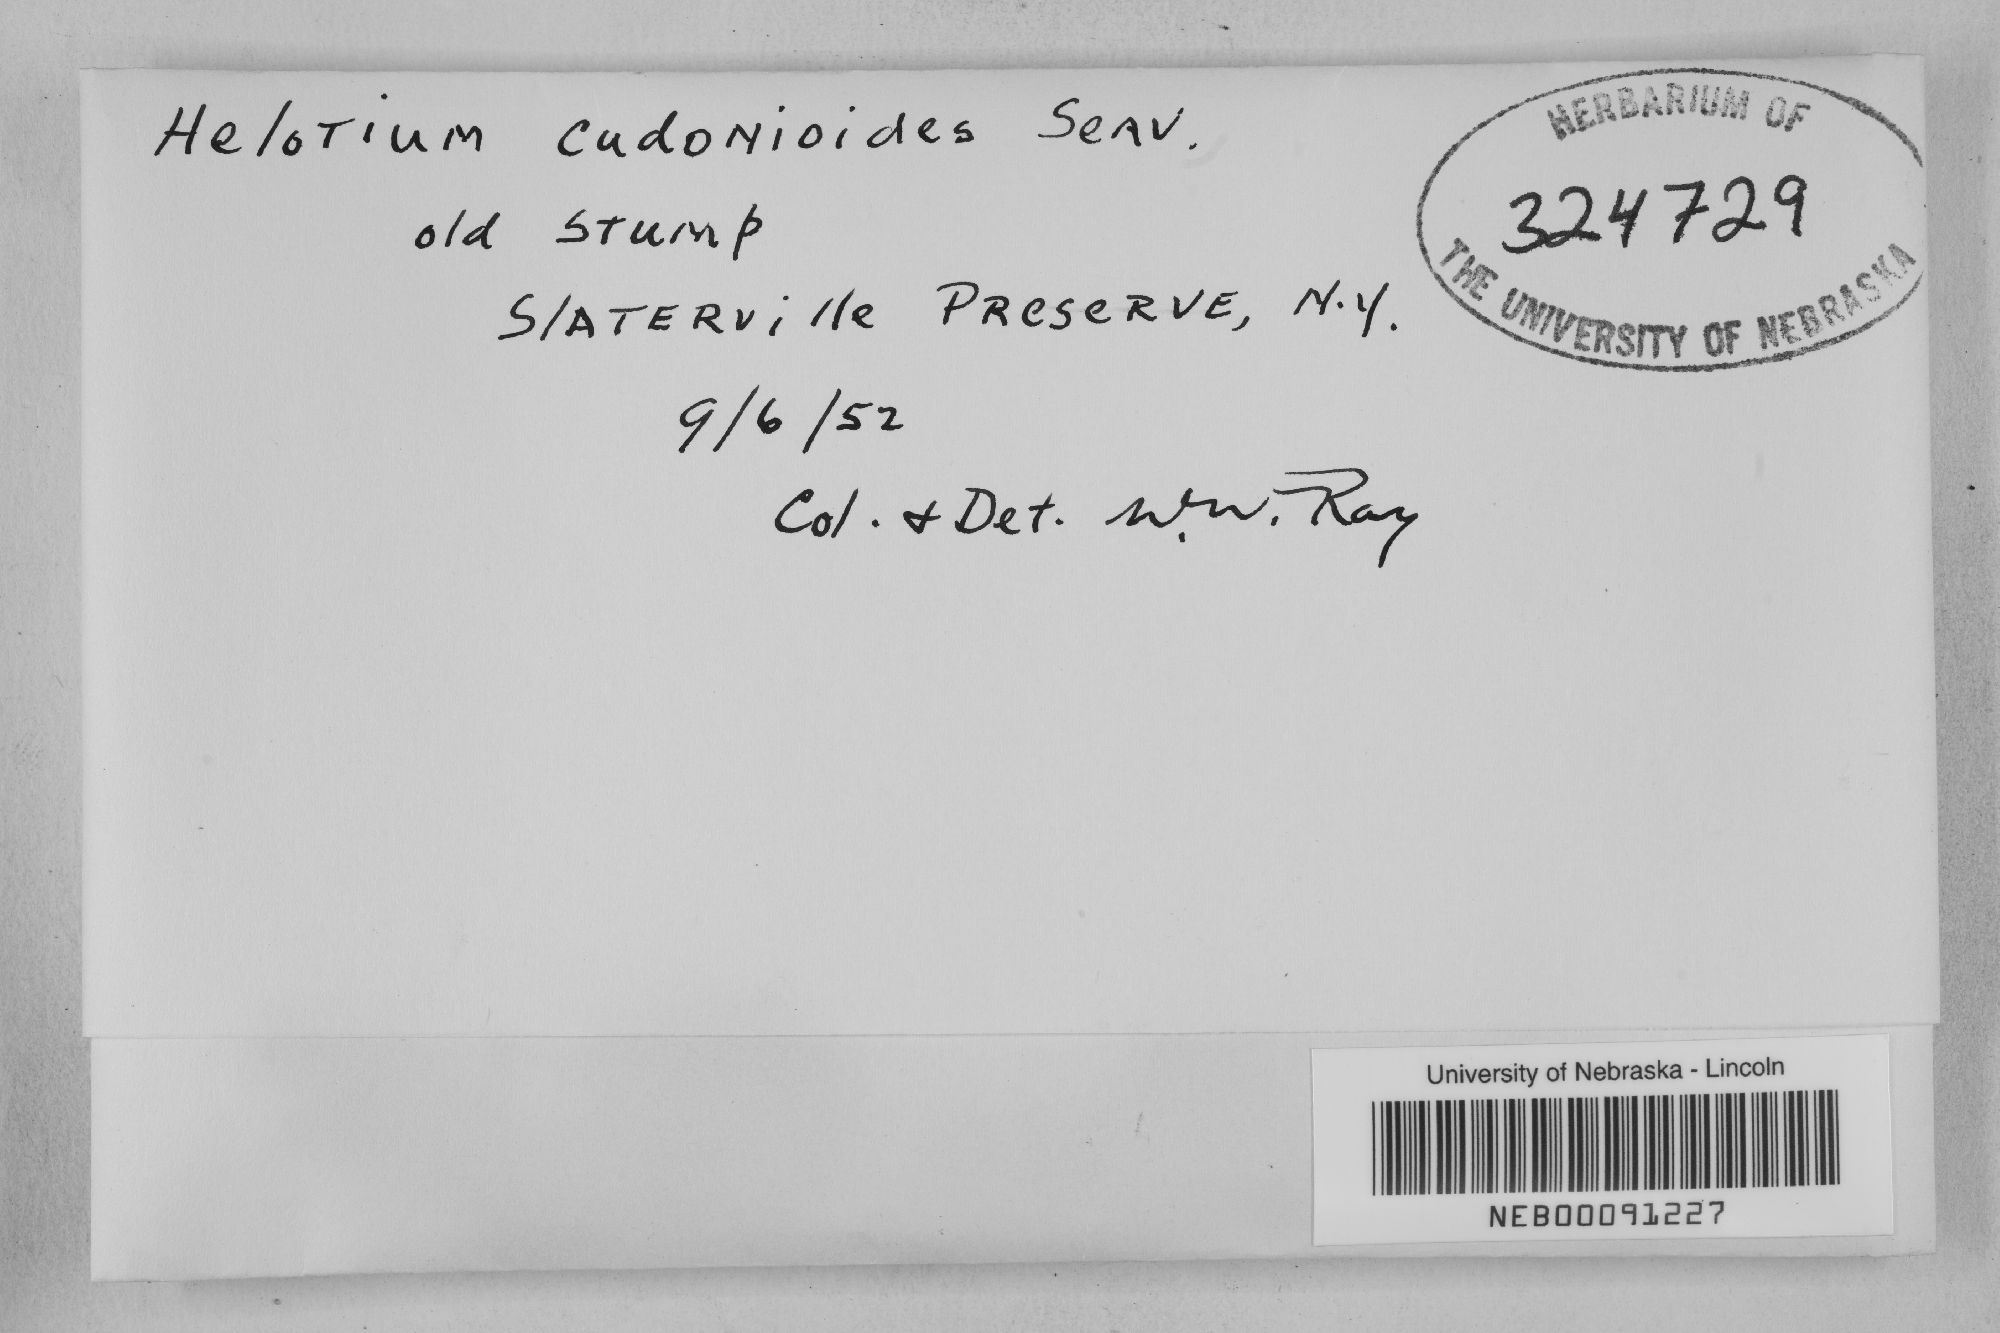 Helotium cudonioides Seav.
old stump
Slaterville Preserve, N.Y.
9/6/52
Col. & Det. W.W. Ray
HERBARIUM OF
324729
THE UNIVERSITY OF NEBRASKA
University of Nebraska - Lincoln
NEB00091227